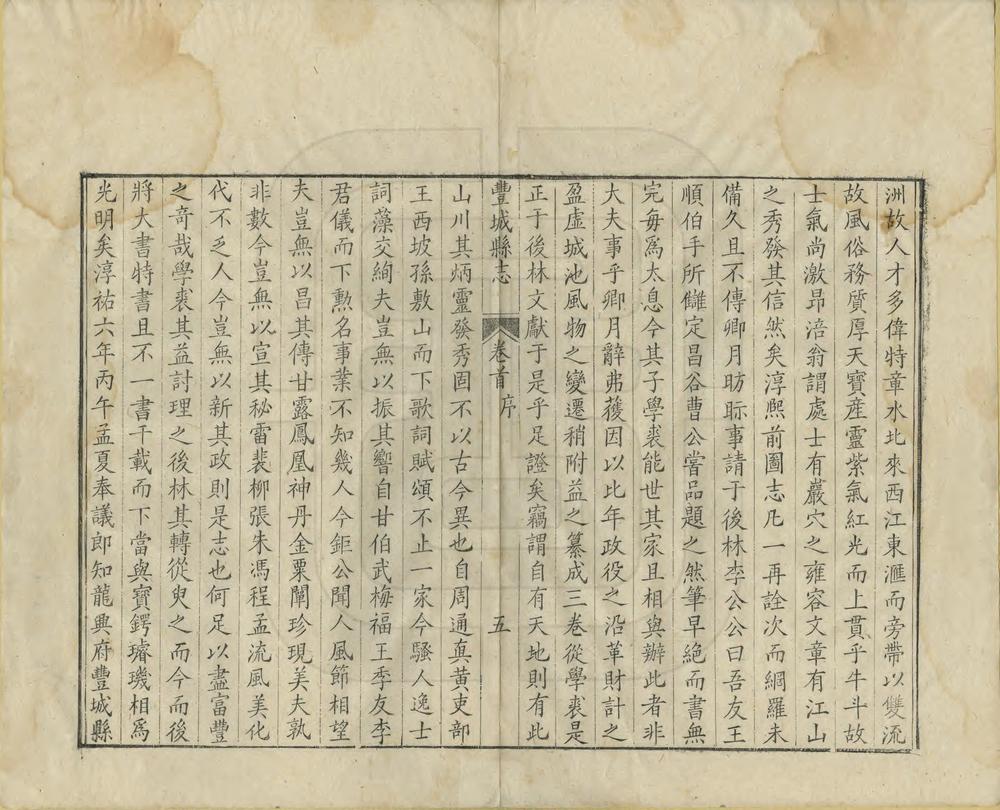 洲故人才多偉特章水北來西江東滙而旁帶以雙流
故風俗務質厚天寶產靈紫氣紅光而上貫乎牛斗故
士氣尚激昂涪翁謂處士有巖穴之雍容文章有江山
之秀發其信然矣淳熙前圖志凡一再詮次而綱羅未
備久且不傳卿月昉眎事請于後林李公公曰吾友王
順伯手所讎定昌谷曹公嘗品題之然筆早絕而書無
完每爲太息今其子學裘能世其家且相與辦此者非
大夫事乎卿月辭弗獲因以比年政役之沿革財計之
盈虛城池風物之變遷稍附益之纂成三卷從學裘是
正于後林文獻于是乎足證矣竊謂自有天地則有此
豐城縣志 卷首 序 五
山川其炳靈發秀固不以古今異也自周通眞黃吏部
王西坡孫敷山而下歌詞賦頌不止一家今騷人逸士
詞藻交絢夫豈無以振其響自甘伯武梅福王季友李
君儀而下勲名事業不知幾人今鉅公聞人風節相望
夫豈無以昌其傳甘露鳳凰神丹金粟闡珍現美夫孰
非數今豈無以宣其秘雷裴柳張朱馮程孟流風美化
代不乏人今豈無以新其政則是志也何足以盡富豐
之奇哉學裘其益討理之後林其轉從臾之而今而後
將大書特書且不一書千載而下當與寶鍔璿璣相爲
光明矣淳祐六年丙午孟夏奉議郎知龍興府豐城縣